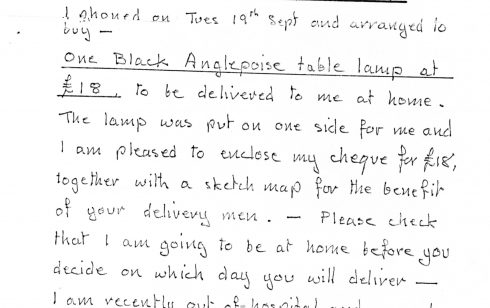 I phoned on Tues 19th Sept and arranged to
buy —
One Black Anglepoise table lamp at
£18, to be delivered to me at home.
The lamp was put on one side for me and
I am pleased to enclose my cheque for £18,
together with a sketch map for the benefit
of your delivery men. — Please check
that I am going to be at home before you
decide on which day you will deliver —
I am recently out of hospital and